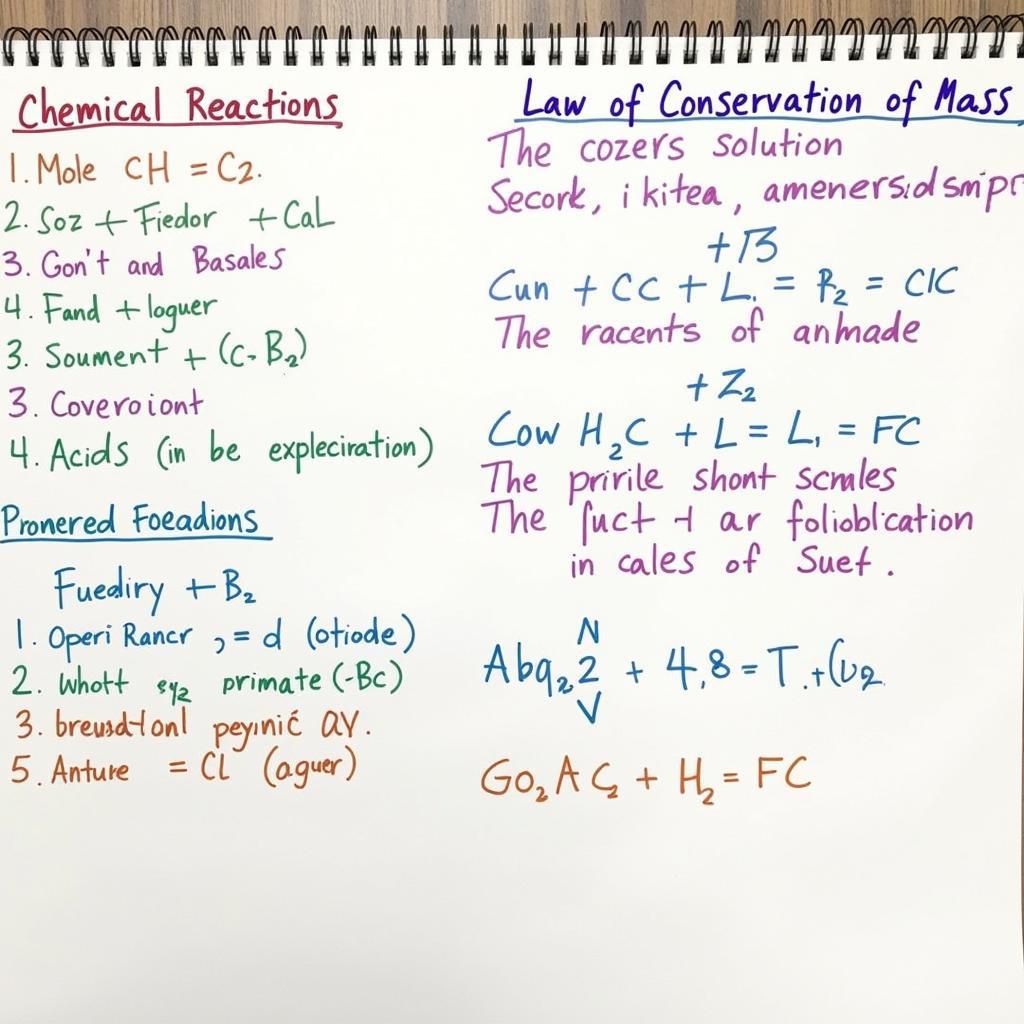 Chemical Reactions
1. Mole CH = C2.
2. Soz + Fiedor + CaL
3. Gon't and Basales
4. Fand + loguer
3. Soument + (C- B₂)
3. Coveroiont
4. Acids (in be expleciration)
Pronered Foeadions
Fuediry + B₂
1. Operi Rancr , = d (otiode)
2. Whott primate (-Bc)
3. peyinić QY.
5. Anture = CL (aguer)
Law of Conservation of Mass
The cozers solution
Secork, i kitea,
+
Cun + CC + L. = R₂ = CIC
The racents of anhmade
+ Z₂
Cow H₂C + L = L, = FC
The pririle shont scmles
The ar
in cales of Suef.
N
Abq₂ 2 + 4,8 = T.+
V
Go₂ A C₂ + H₂ = FC